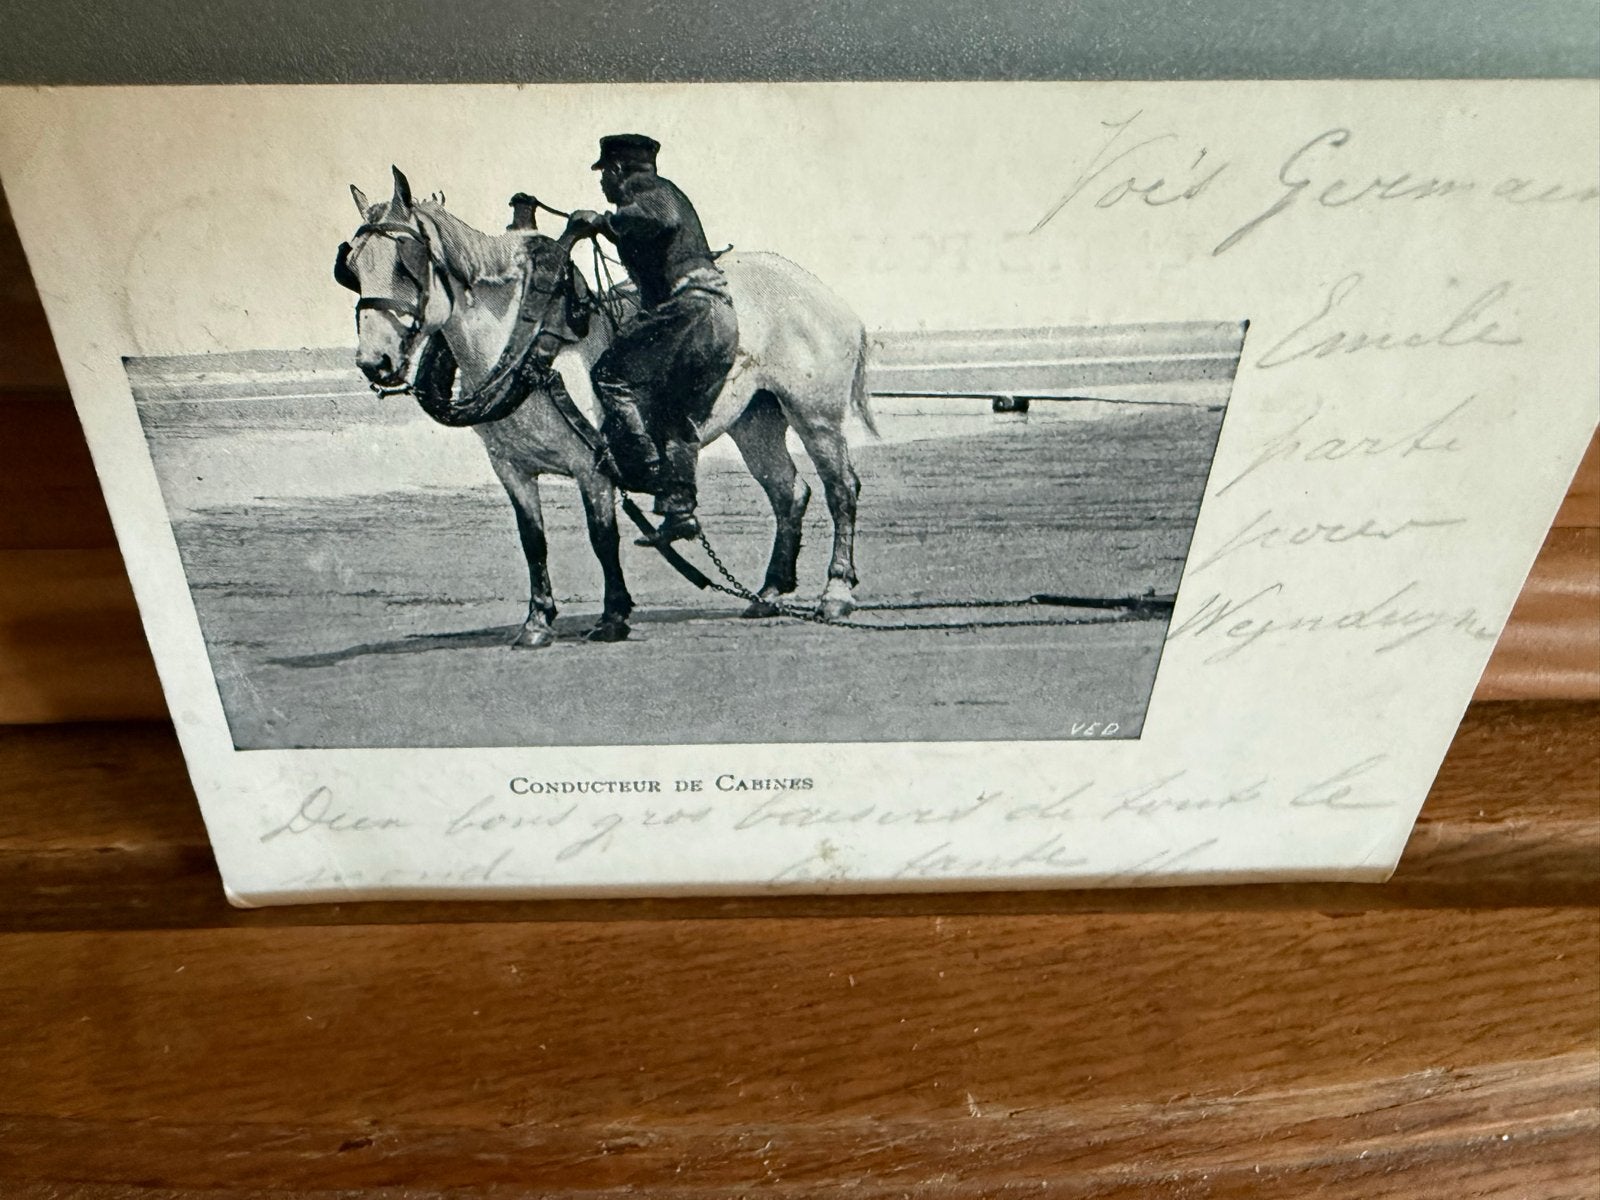 Vois Germain
Emile
parti
pour
Wenduyne
VED
CONDUCTEUR DE CABINES
Deux bons gros baisers de tout le
monde la tante